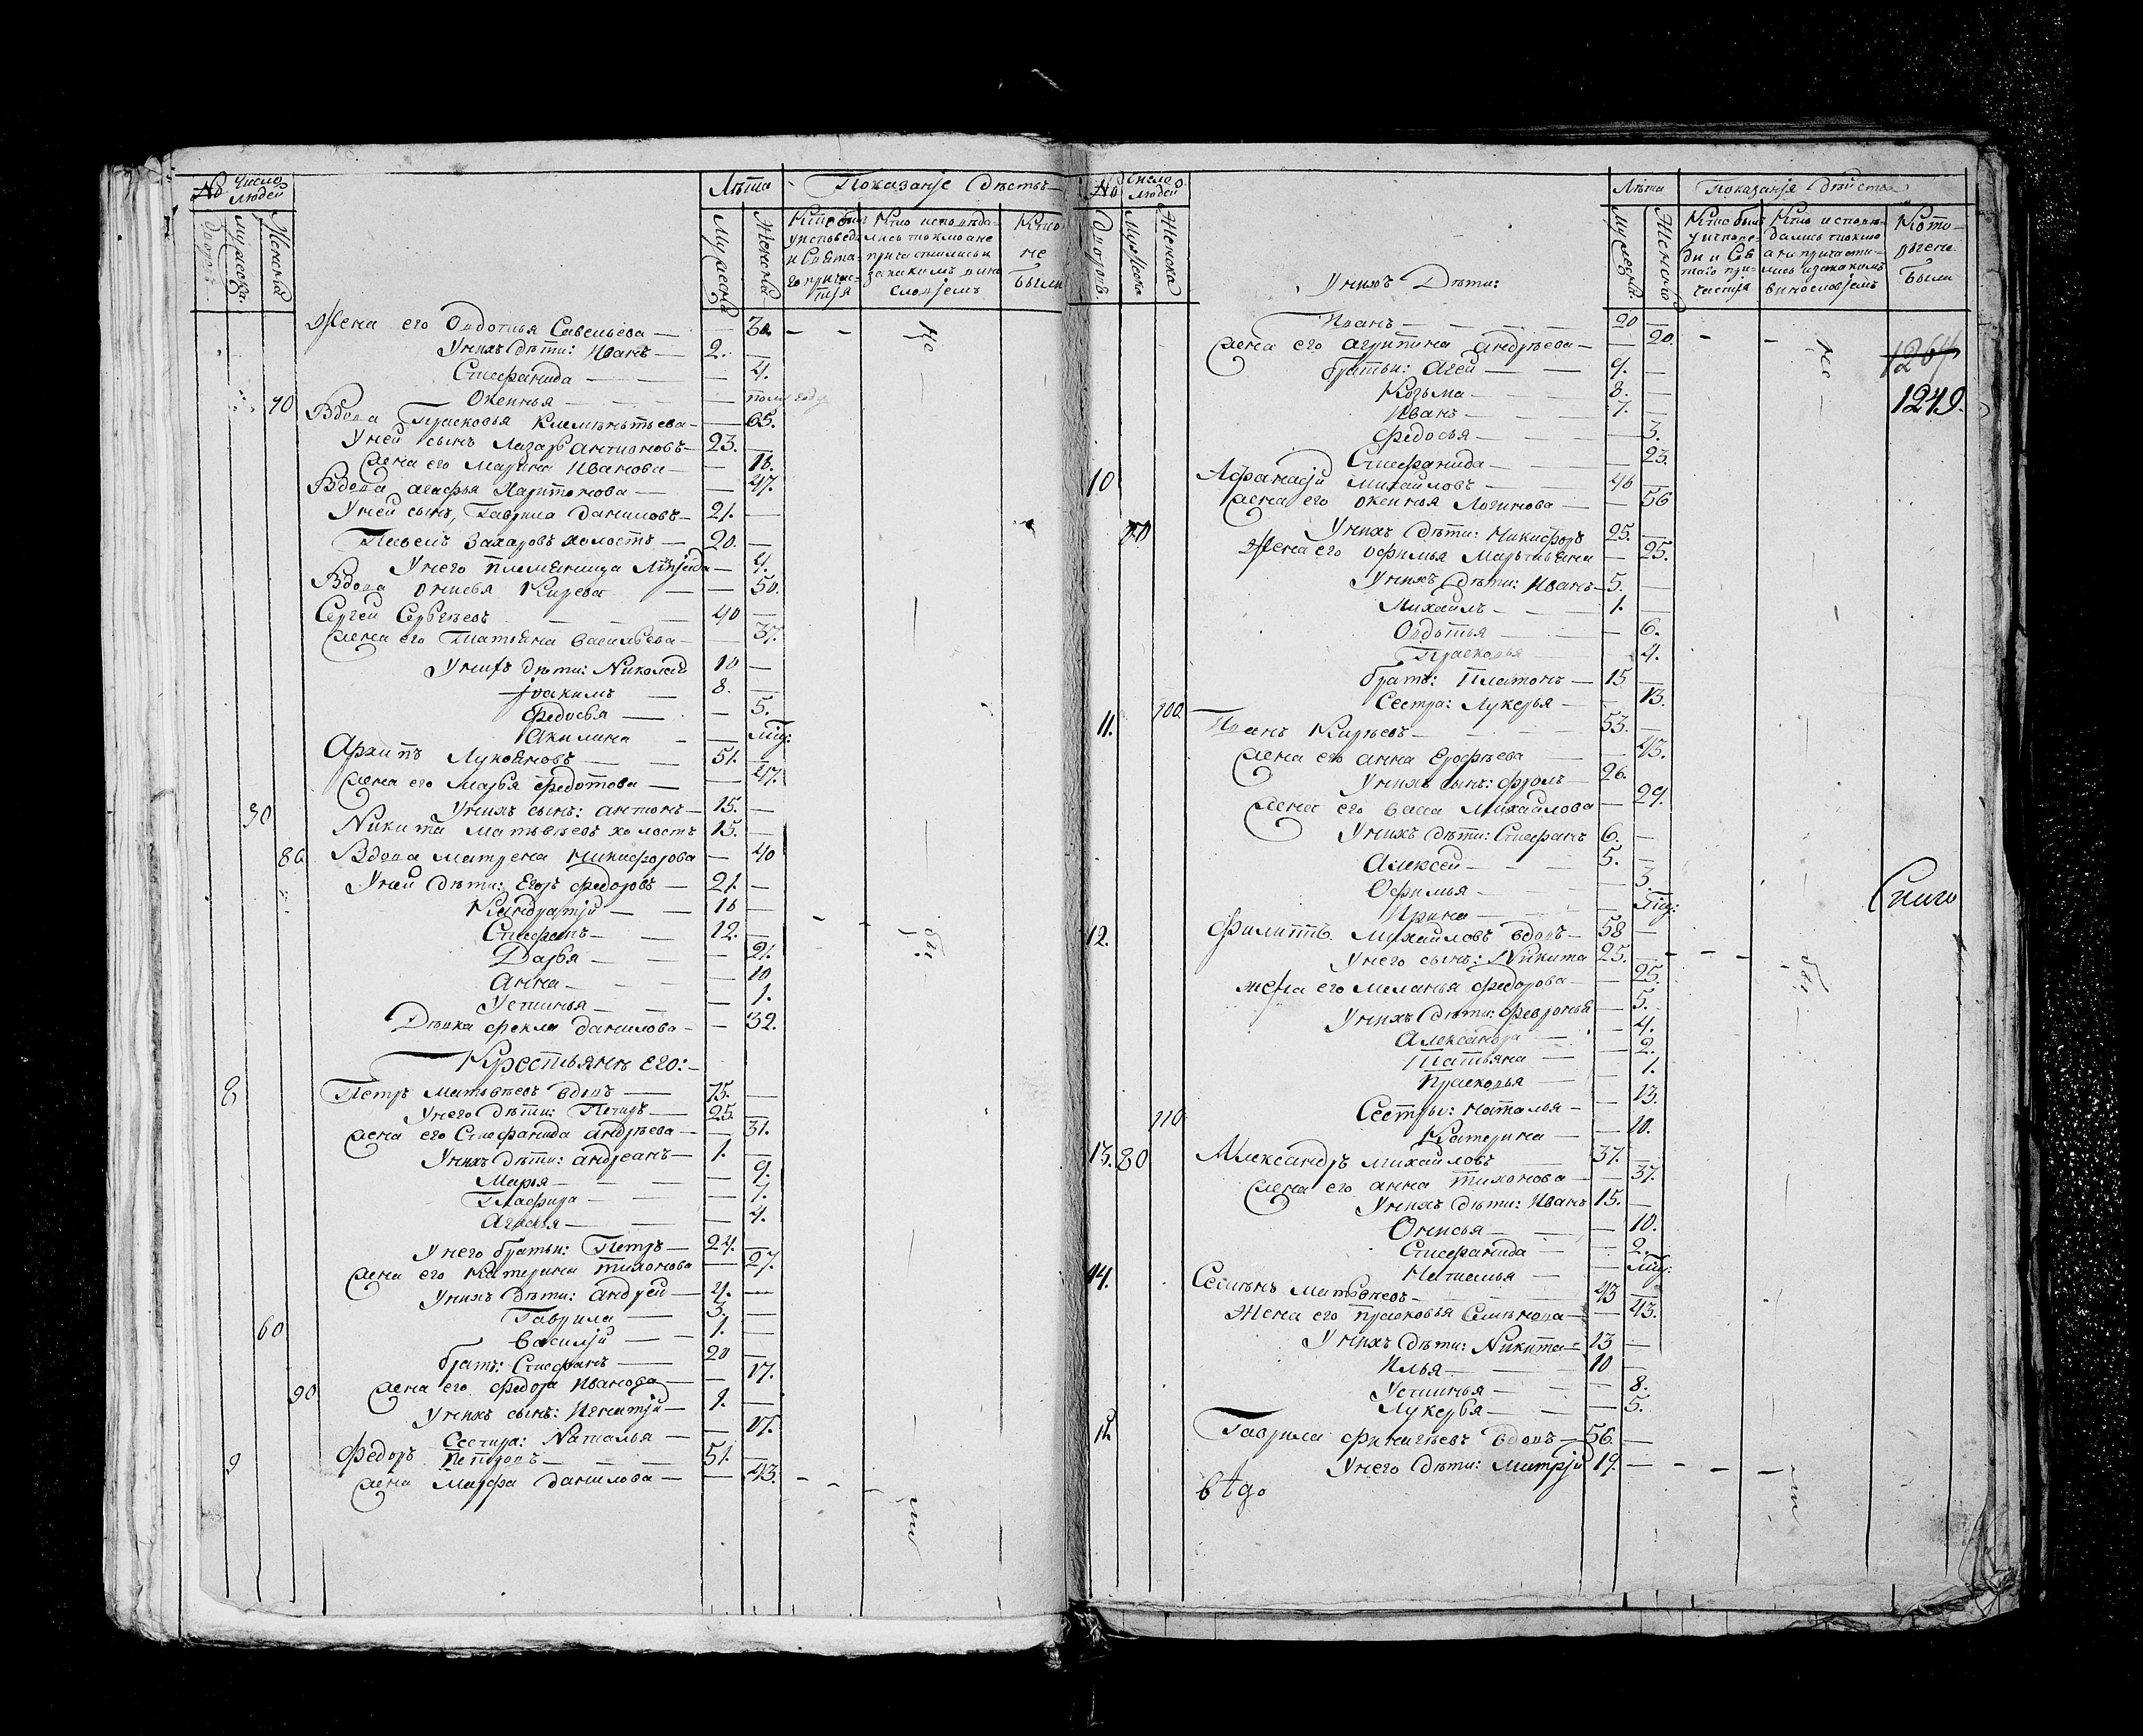 № Число людей Лѣта Показанје дѣствъ
дворовъ Мужеска Женска Мужеска Женска Кто были у исповеди и Свѧтаго причастія Кто исповѣдались токмо а не причастились и за какимъ винословјемъ Кто не были
Жена его Овдотья Савельева — — 30. не
У нихъ дѣти: Иванъ — 2. —
Стефанида — — 4.
Оксинья — — полугоду
70 Вдова Прасковья Клемѣнтьева — — 65.
У ней сынъ Лазарь Антионовъ — 23. —
Жена его Марина Иванова — — 18.
Вдова Агафья Харитонова — — 47.
У ней сынъ, Гаврила Даниловъ — 21. —
Павелъ Захаровъ холостъ — 20. —
У него племѧница — 4.
Вдова Онисья Кирева — — 50.
Сергей Сергѣевъ — 40 —
Жена его Татьяна Васильева — — 37.
У нихъ дѣти: Николай 10 —
Јоакимъ — 8. —
Федосья — — 5.
Акилина — —
Архипъ Лукояновъ — 51. —
Жена его Марья Федотова — — 47.
50 У нихъ сынъ: Антонъ — 15. —
Никита Матвѣевъ холостъ 15. —
80 Вдова Матрена Никифорова — 40
У ней дѣти: Егоръ Федоровъ — 21. —
Кандратјй — 18 —
Стефанъ — 12. — бы
Дарья — — 21.
Анна — — 10
Устинья — — 1.
Дѣвка Фекла Данилова — — 32.
Крестьянѣ Его:
8 Петръ Матвѣевъ вдовъ — 75. —
У него дѣти: Петръ — 25. —
Жена его Стефанида Андрѣева — — 31.
У нихъ дѣти: Андреанъ — 1. —
Марья — — 9.
Глафира — — 7.
Агафья — — 4.
У него братьи: Петръ — 24. —
Жена его Катерина Тихонова — — 27.
У нихъ дѣти: Андрей — 4. —
Гаврила — 3. —
60 Василјй — 1. —
братъ: Стефанъ — 20 —
90 Жена его Федора Иванова — — 17.
У нихъ сынъ: Игнатјй — 1. —
Сестра: Наталья — — 17.
9 Федоръ Петровъ — 51. —
Жена Марфа Данилова — — 43. ли
№ Число людей Лѣта Показанје дѣйства
дворовъ Мужеска Женска Мужеска Женска Кто былъ у исповеди и Свѧтаго причастія Кто исповѣдались токмо а не причастились и за какимъ винословјемъ Кото рые не были
У нихъ Дѣти:
Иванъ — 20 —
Жена его Агрипина Андрѣева — — 20. не 1264
братьи: Агей — 9. —
Козьма — 8. — 1249.
Иванъ — 7. —
Федосья — — 3.
Стефанида — — 23.
10 Афанасјй Михайловъ — 46 —
Жена его Оксинья Логинова — — 56
70 У нихъ дѣти: Никифоръ 25. —
Жена его Офимья — 25.
У нихъ дѣти: Иванъ — 5. —
Михайлъ — 1. —
Овдотья — — 6.
Прасковья — — 4.
братъ: Платонъ — 15 —
Сестра: Лукерья — — 13.
11. 100 Иванъ Кирѣевъ — 53. —
Жена его Анна Ерофѣева — 45.
У нихъ сынъ: Фролъ — 26. —
Жена его Васса Михайлова — 29.
У нихъ дѣти: Стефанъ 6. —
Алексей — 5. —
Офимья — — 3.
Ирина — —
12. Филиппъ Михайловъ вдовъ — 58 —
У него сынъ: Никита 25. — бы
жена его Меланья Федорова — — 25.
У нихъ дѣти: Февронья — 5.
Александра — — 4.
Татьяна — — 2.
Прасковья — — 1.
Сестры: Наталья — — 13.
110 Катерина — — 10.
13. 80 Александръ Михайловъ 37. —
Жена его Анна Тихонова — — 37.
У нихъ дѣти: Иванъ 15. —
Онисья — — 10.
Стефанида — — 2.
Наталья — —
14. Семѣнъ Матвѣевъ — 43 —
Жена его Прасковья Семѣнова — 43.
У нихъ дѣти: Никита — 13 —
Илья — 10 —
Устинья — — 8.
Лукерья — — 5.
Гаврила вдовъ — 56. —
У него дѣти: Митрјй 19. — ли